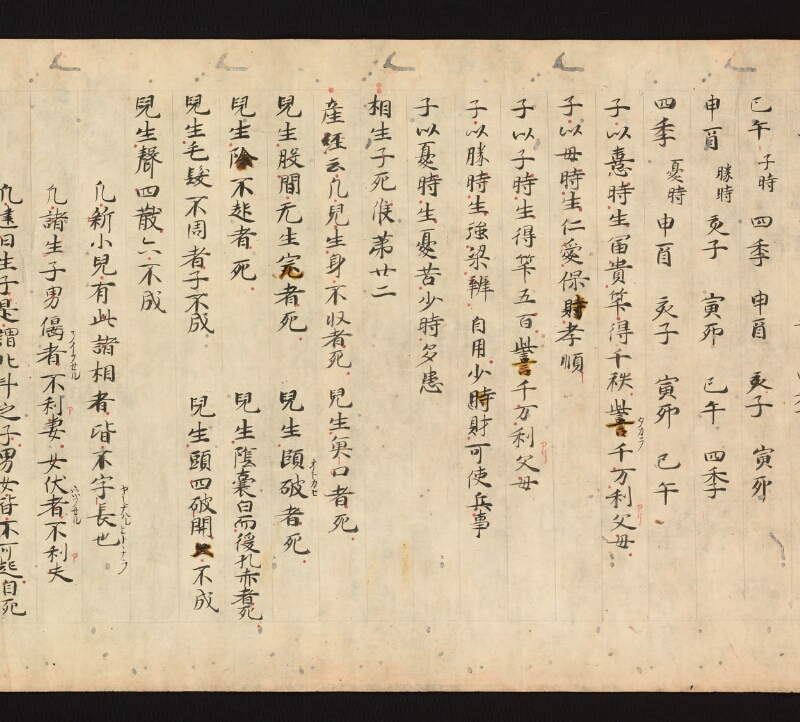 巳午 子時 四季 申酉 亥子 寅卯
申酉 勝時 亥子 寅卯 巳午 四季
四季 憂時 申酉 亥子 寅卯 巳午
子以憙時生冨貴筭得千秩訾千万利父母
子以母時生仁愛保財孝順
子以子時生得筭五百訾千万利父母
子以勝時生強梁辨自用少時財可使兵事
子以憂時生憂苦少時多患
相生子死候第廿二
産經云凢兒生身不収者死 兒生魚口者死
兒生股間无生宍者死 兒生頤破者死
兒生陰不起者死 兒生陰囊白而後孔赤者死
兒生毛髮不周者子不成 兒生頭四破開 不成
兒生聲四散亦不成
凢新小兒有此諸相者皆不字長也
凢諸生子男偃者不利妻女伏者不利夫
凢遠日生子是謂北斗之子男女皆不可起自死